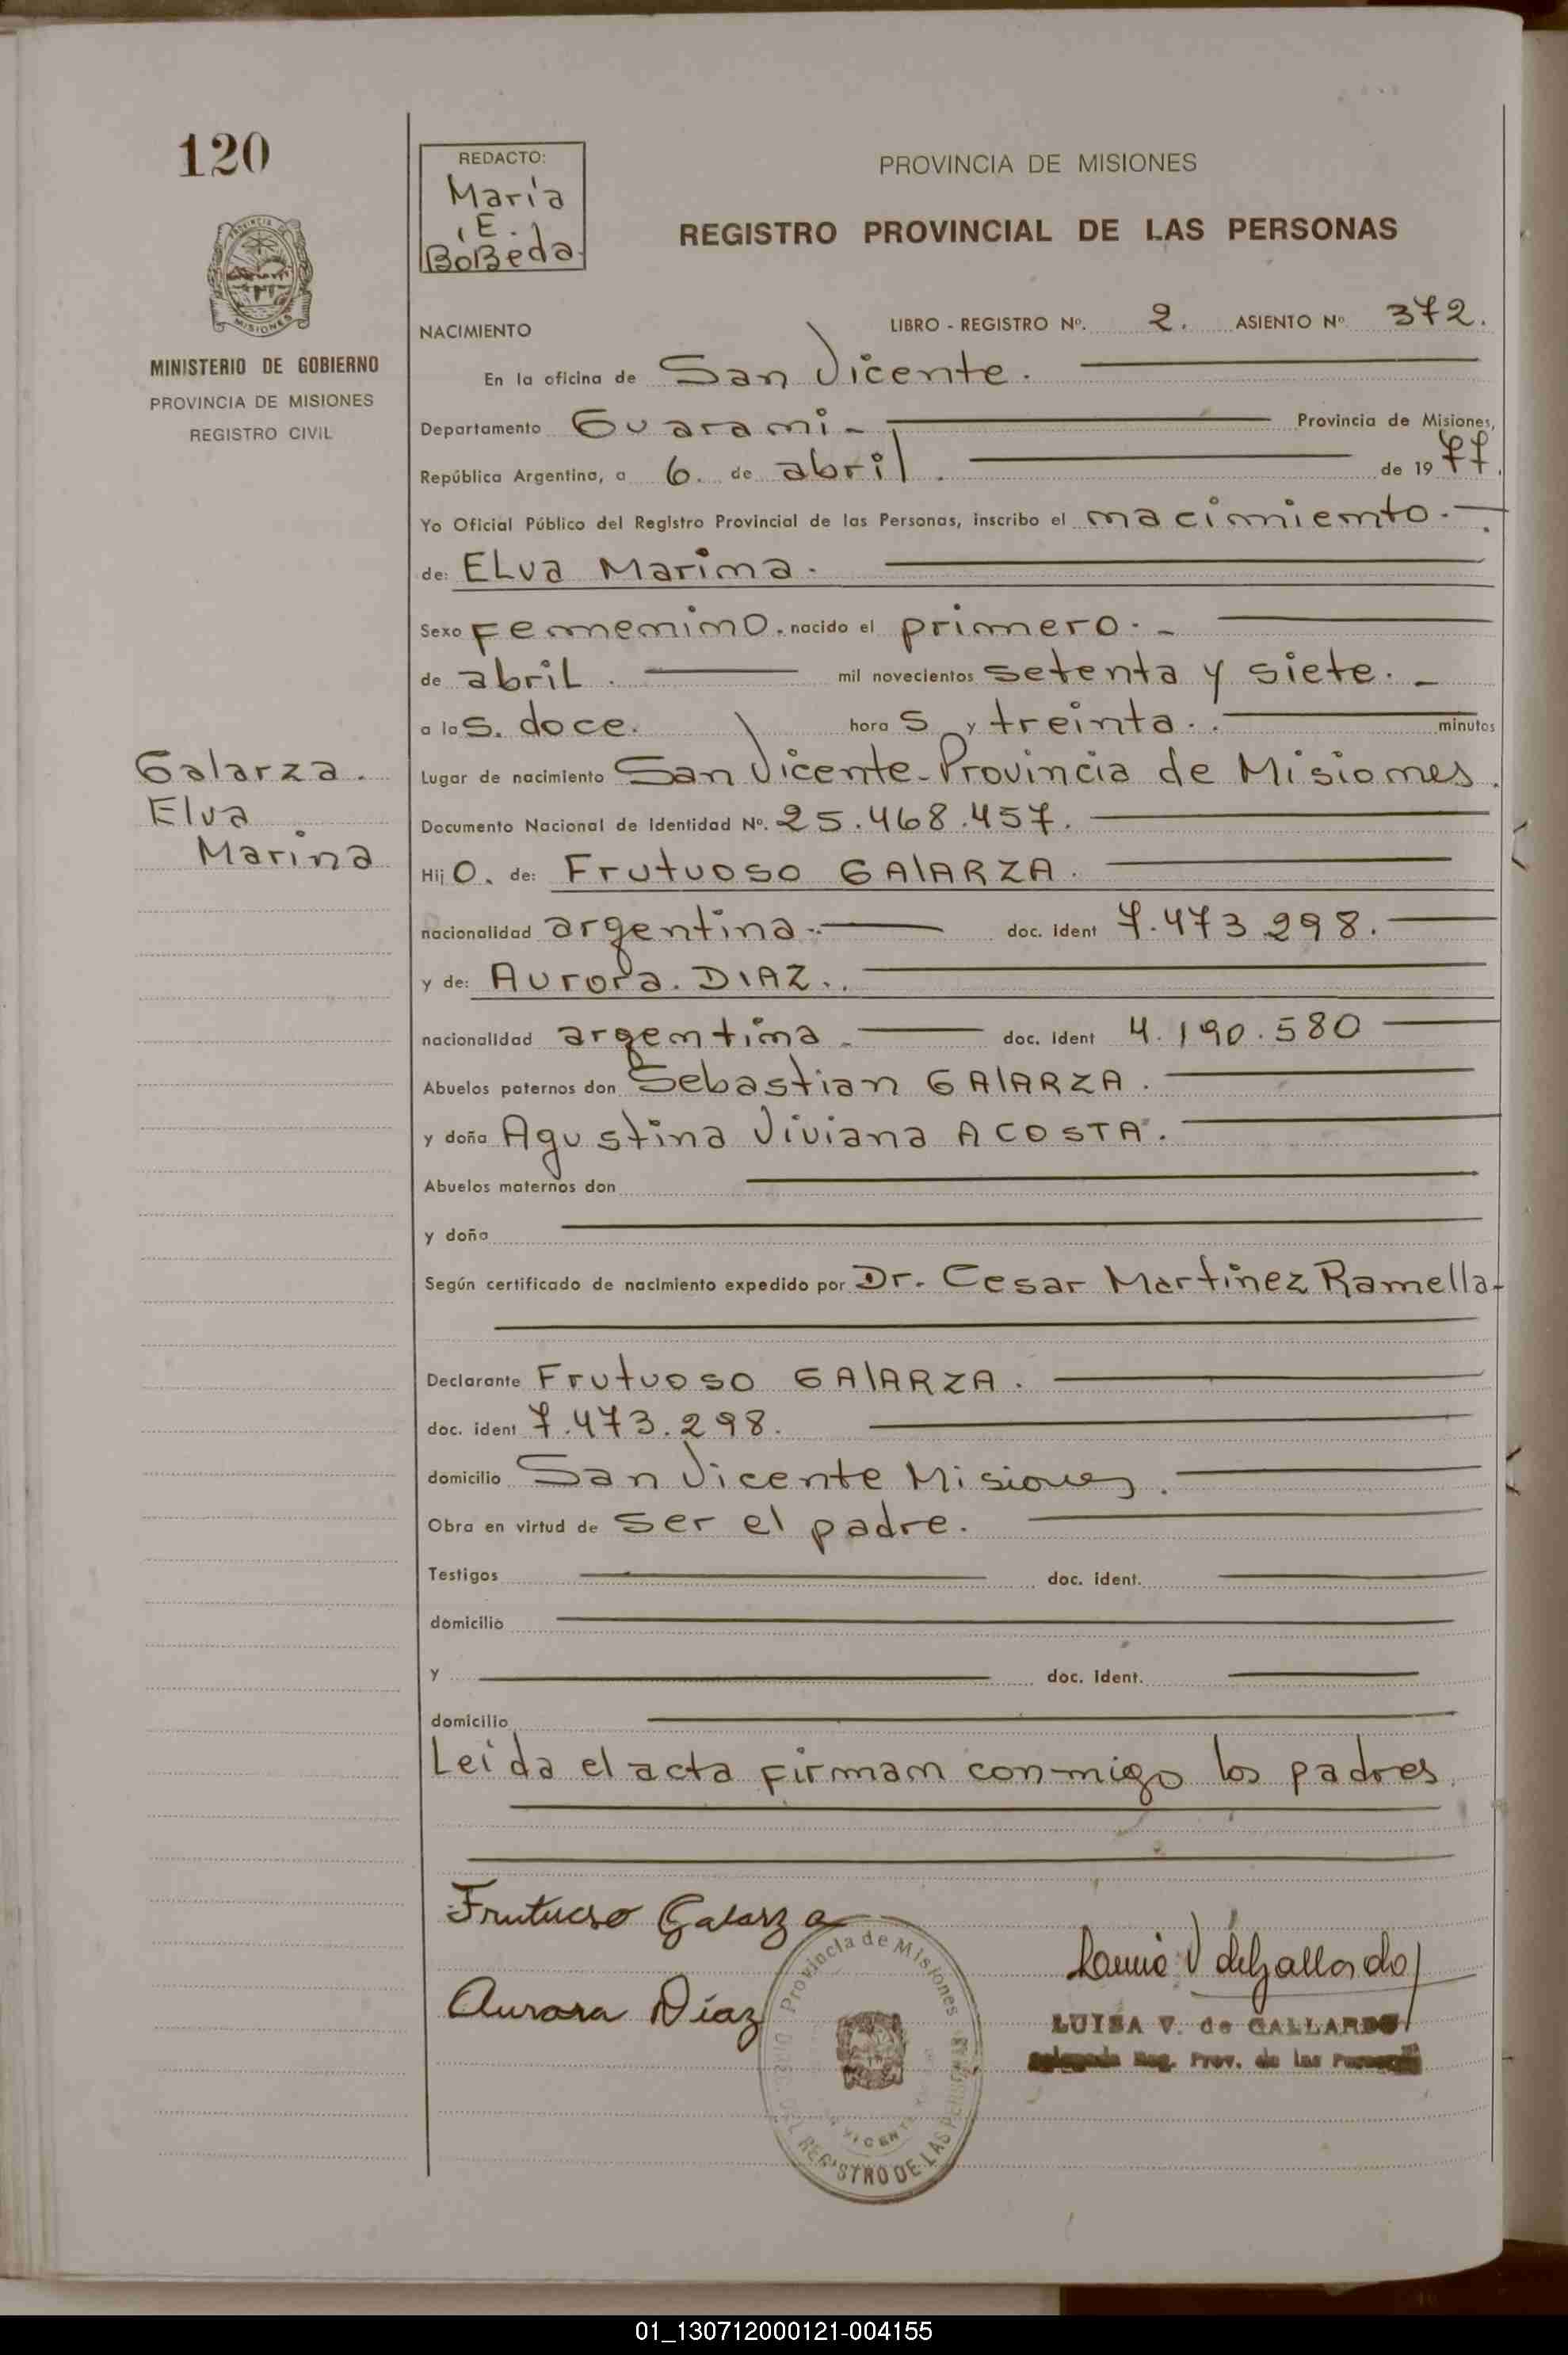 120
REDACTO:
María
E.
BoBeda
PROVINCIA DE MISIONES
REGISTRO PROVINCIAL DE LAS PERSONAS
MINISTERIO DE GOBIERNO
PROVINCIA DE MISIONES
REGISTRO CIVIL
NACIMIENTO
LIBRO - REGISTRO Nº. 2. ASIENTO Nº 372.
En la oficina de San Vicente.
Departamento Guarami - Provincia de Misiones,
República Argentina, a 6. de abril. de 1977.
Yo Oficial Público del Registro Provincial de las Personas, inscribo el macimiemto.
de: ELva Marima.
Sexo Femmemimo. nacido el primmero. -
de abriL. mil novecientos setenta y siete. -
a las. doce. horas y treinta. minutos
Galarza.
Elva
Marina
Lugar de nacimiento San Vicente-Provincia de Misiomes.
Documento Nacional de Identidad Nº. 25.468.457.
Hijo. de: Frutuoso GAlARZA.
nacionalidad argentina. doc. ident 7.473.298.
y de: Aurora. DIAZ.
nacionalidad argemtima - doc. ident 4.190.580
Abuelos paternos don Sebastian GAlARZA.
y doña Agustina Viviana ACOSTA.
Abuelos maternos don
y doña
Según certificado de nacimiento expedido por Dr. Cesar Martinez Ramella-
Declarante Frutuoso GAlARZA.
doc. ident 7.473.298.
domicilio San Vicente Misiones.
Obra en virtud de ser el padre.
Testigos doc. ident.
domicilio
y doc. ident.
domicilio
Leida el acta firmam conmigo los padres.
Frutuoso Galarza
Aurora Díaz
Provincia de Misiones
REGISTRO DE LAS PERSONAS
VICENTE
LUISA V. de GALLARDO
Reg. Prov. de las Personas
01_130712000121-004155